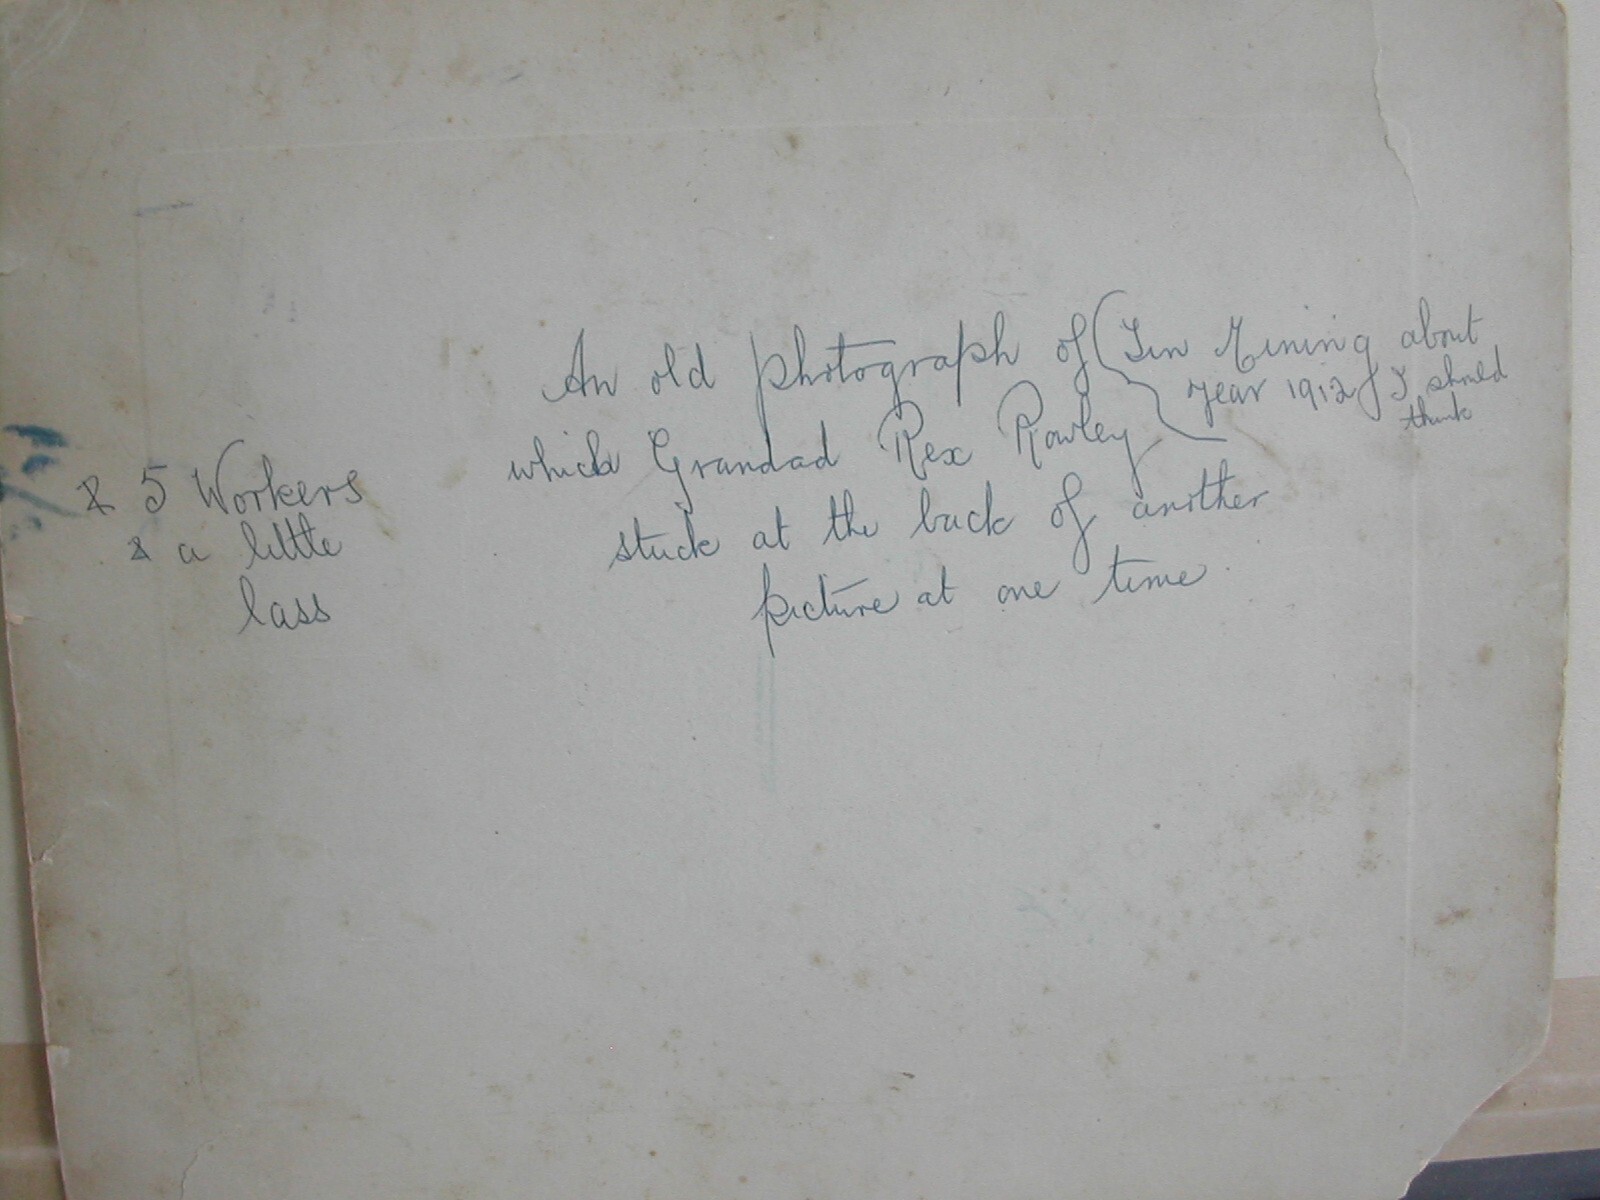 An old photograph of (Tin Mining about
year 1912) I should
think
which Grandad Rex Rowley
stuck at the back of another
picture at one time.
& 5 Workers
& a little
lass